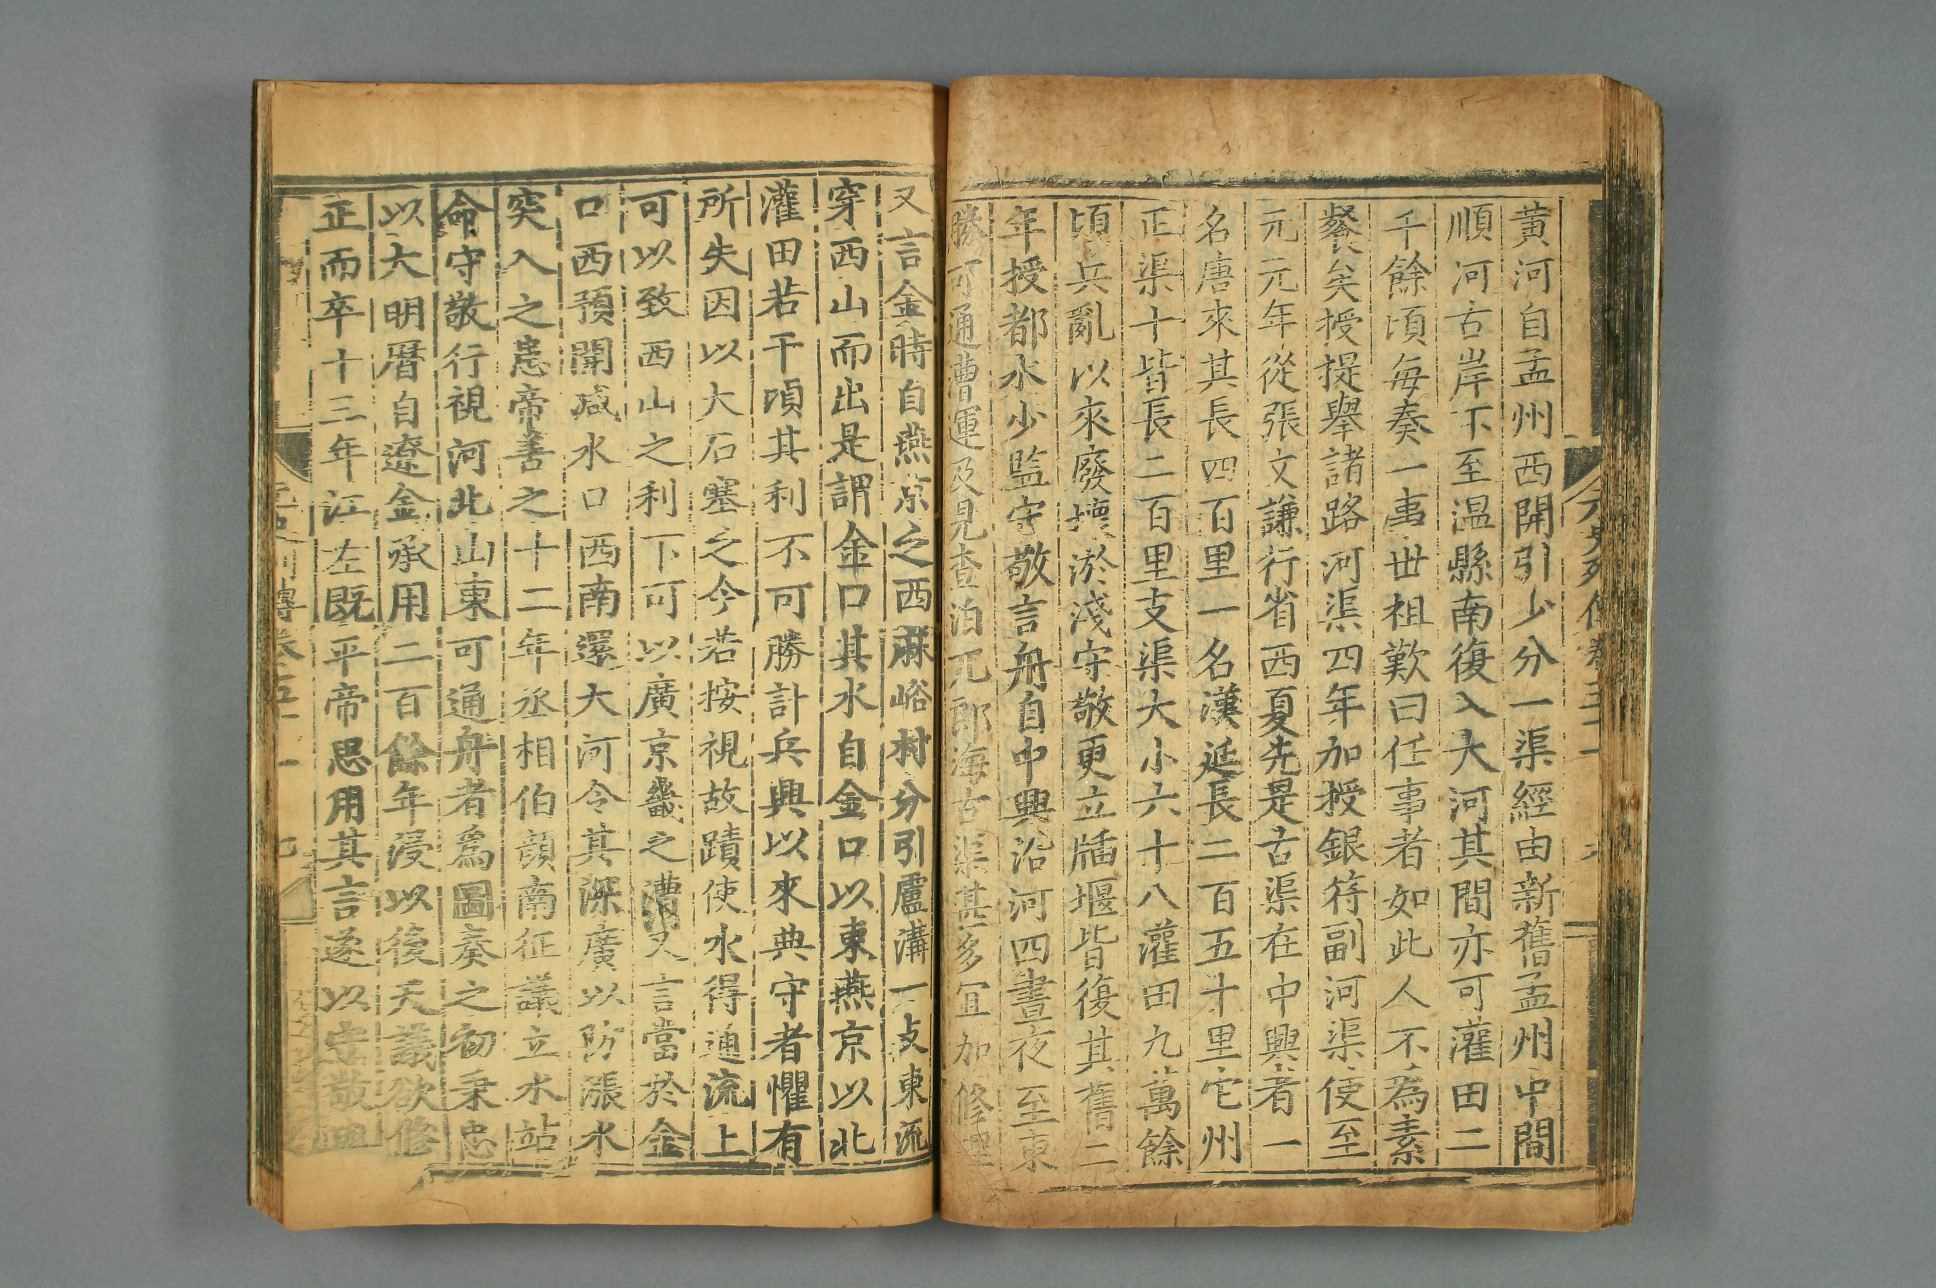 黃河自孟州西開引少分一渠經由新舊孟州中間
順河古岸下至溫縣南復入大河其間亦可灌田二
千餘頃每奏一事世祖歎曰任事者如此人不為素
餐矣授提舉諸路河渠四年加授銀符副河渠使至
元元年從張文謙行省西夏先是古渠在中興者一
名唐來其長四百里一名漢延長二百五十里它州
正渠十皆長二百里支渠大小六十八灌田九萬餘
頃兵亂以來廢壞淤淺守敬更立牐堰皆復其舊二
年授都水少監守敬言舟自中興沿河四晝夜至東
勝可通漕運及見查泊兀郎海古渠甚多宜加修理
又言金時自燕京之西麻峪村分引盧溝一支東流
穿西山而出是謂金口其水自金口以東燕京以北
灌田若干頃其利不可勝計兵興以來典守者懼有
所失因以大石塞之今若按視故蹟使水得通流上
可以致西山之利下可以廣京畿之漕又言當於金
口西預開減水口西南還大河令其深廣以防漲水
突入之患帝善之十二年丞相伯顏南征議立水站
命守敬行視河北山東可通舟者為圖奏之初秉忠
以大明曆自遼金承用二百餘年浸以後天議欲修
正而卒十三年江左既平帝思用其言遂以守敬